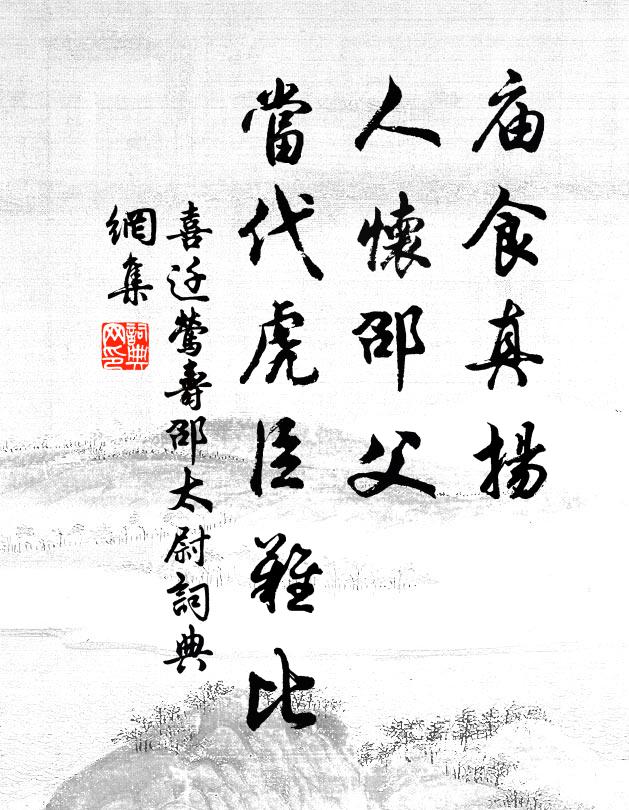 庙食真揚
人懷邵父
當代虎臣難比
喜迁鶯壽邵太尉詞典
網集
詞典
网印